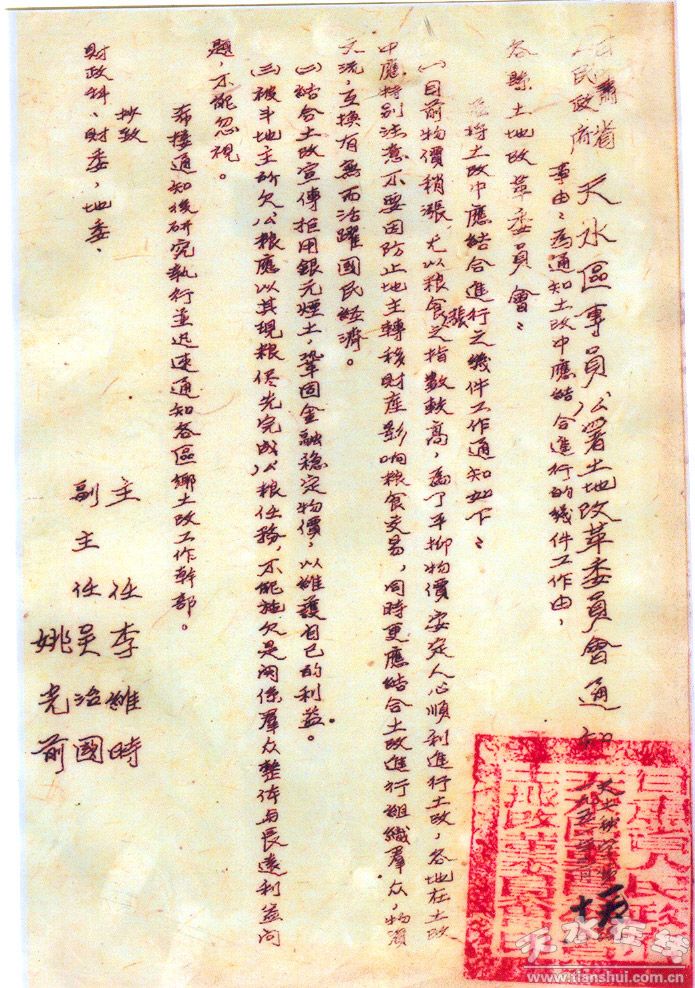 甘肅省
人民政府
天水區專員公署土地改革委員會通知
事由：為通知土改中應結合進行的幾件工作由，
各縣土地改革委員會：
茲將土改中應結合進行之幾件工作通知如下：
(一)目前物價稍漲，尤以粮食之漲指数較高，為了平抑物價安定人心順利進行土改，各地在土政
中應特别注意不要因防止地主轉移財產影响粮食交易，同時更應結合土改進行組織羣众，物資
交流，互換有無而活躍國民經濟。
(二)結合土改宣傳拒用銀元煙土，鞏固金融穩定物價，以維護自己的利益。
(三)被斗地主所欠公粮應以其現粮侭先完成公粮任務，不能拖欠是関係羣众整体与長遠利益问
題，不能忽視。
希接通知後研究執行並迅速通知各區鄉土改工作幹部。
抄致
財政科、財委，地委、
主任李維時
副主任吴治國
姚光前
天水在线
www.tianshui.com.cn